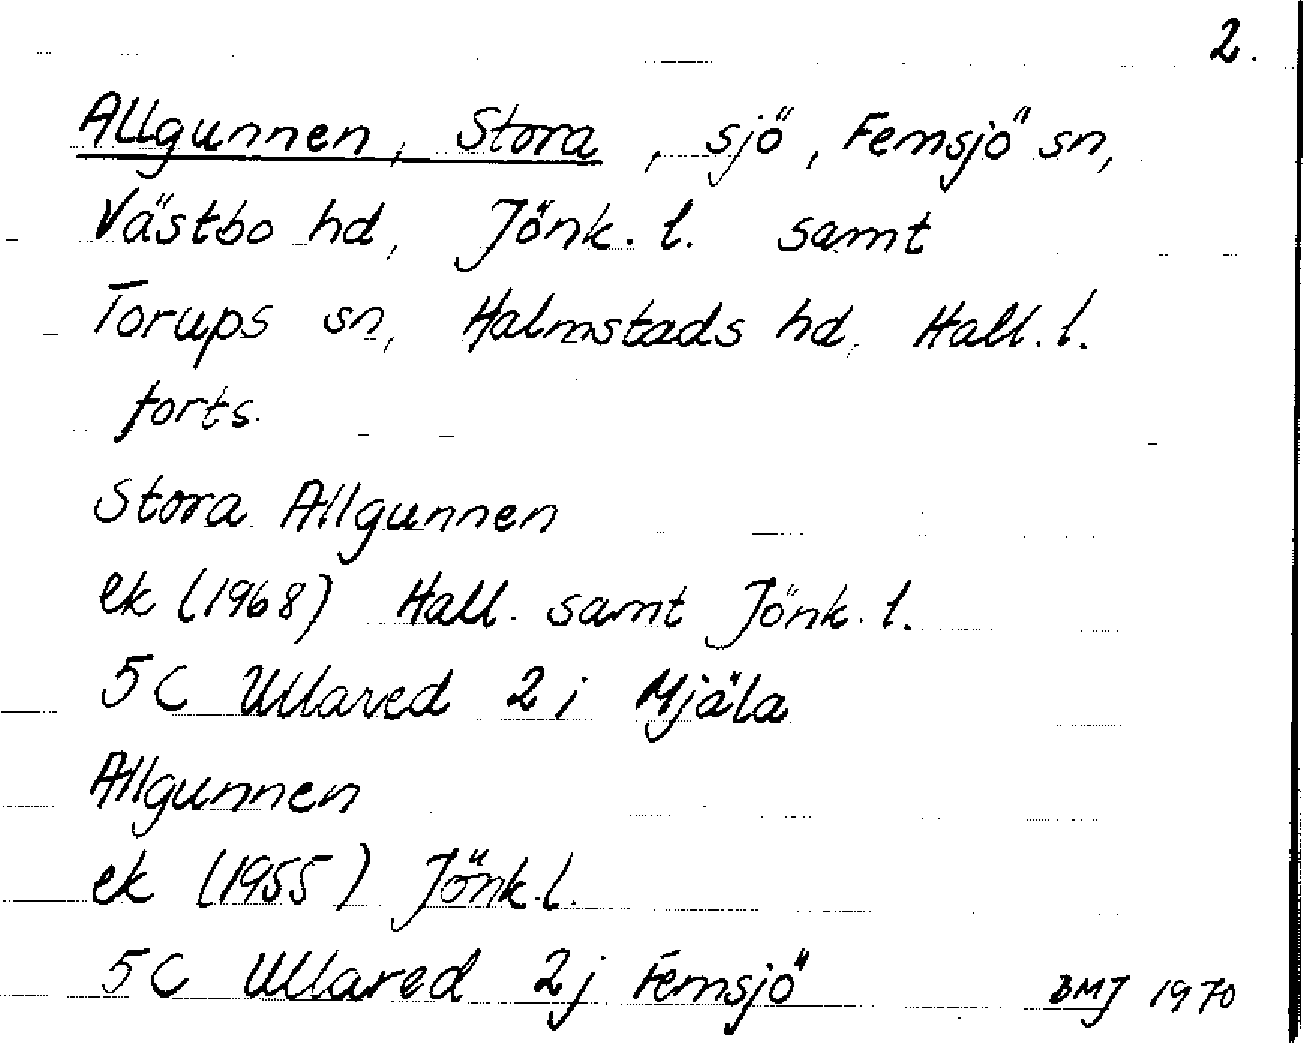 2.
Allgunnen, Stora, sjö, Femsjö sn,
Västbo hd, Jönk. l. samt
Torups sn, Halmstads hd, Hall. l.
forts.
Stora Allgunnen
ek (1968) Hall. samt Jönk. l.
5C Ullared 2i Mjäla
Allgunnen
ek (1955) Jönk. l.
5C Ullared 2j Femsjö BMJ 1970